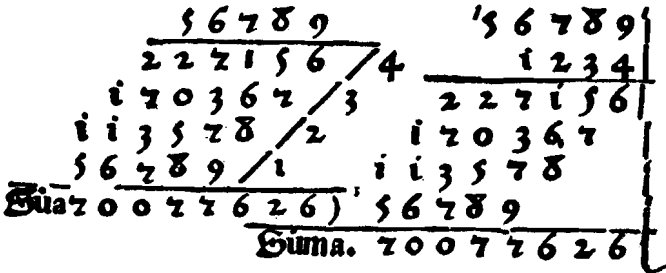 5 6 7 8 9
2 2 7 1 5 6 / 4
1 7 0 3 6 7 / 3
1 1 3 5 7 8 / 2
5 6 7 8 9 / 1
Süa 7 0 0 7 7 6 2 6 )
5 6 7 8 9
1 2 3 4
2 2 7 1 5 6
1 7 0 3 6 7
1 1 3 5 7 8
5 6 7 8 9
Suma. 7 0 0 7 7 6 2 6